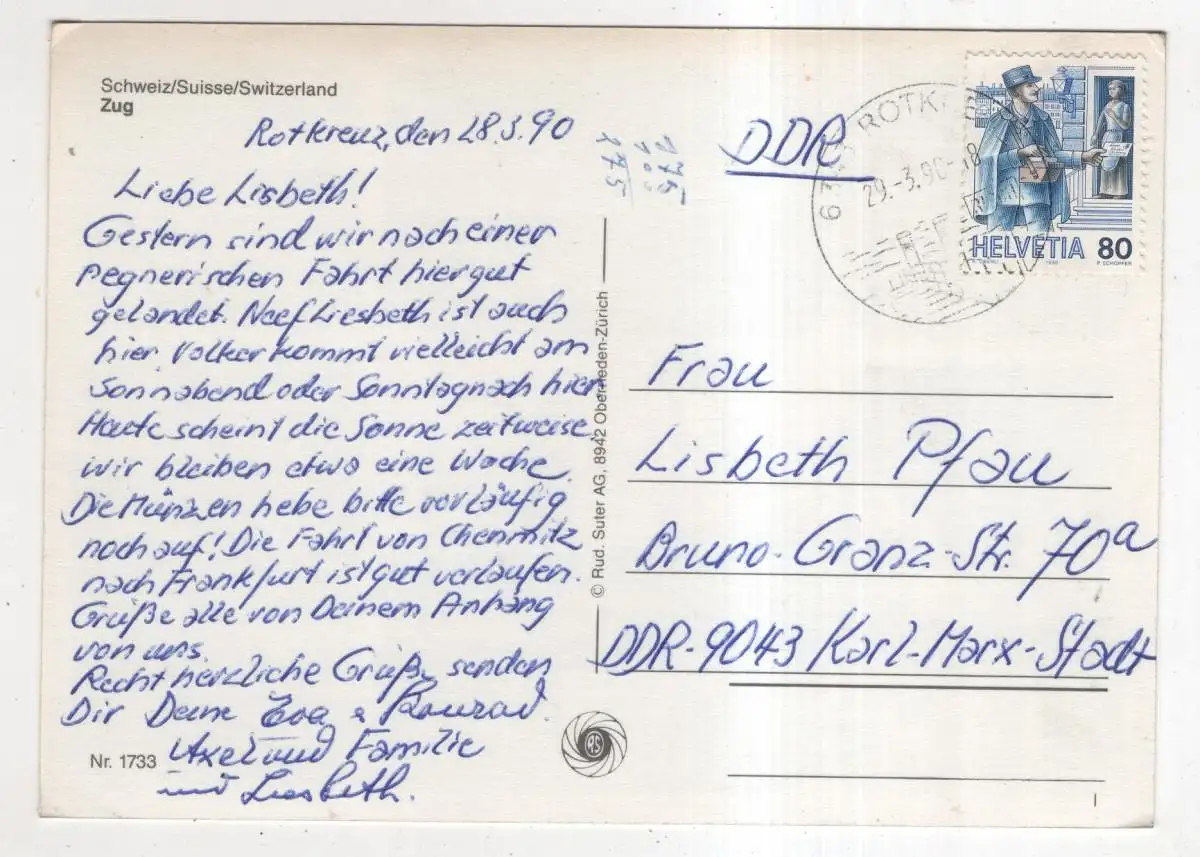 Schweiz/Suisse/Switzerland
Zug
Rotkreuz, den 28.3.90
Liebe Lisbeth!
Gestern sind wir nach einer
regnerischen Fahrt hier gut
gelandet. Liesbeth ist auch
hier. Volker kommt vielleicht am
Sonnabend oder Sonntag nach hier
Heute scheint die Sonne zeitweise
wir bleiben etwa eine Woche.
Die Münzen hebe bitte vorläufig
noch auf! Die Fahrt von Chemnitz
nach Frankfurt ist gut verlaufen.
Grüße alle von Deinem Anhang
von uns.
Recht herzliche Grüße senden
Dir Deine Eva & Konrad
Axel und Familie
und Liesbeth.
Nr. 1733
© Rud. Suter AG, 8942 Oberrieden-Zürich
RS
DDR
ROTKR
29.-3.90-18
HELVETIA 80
P. SCHOPFER
Frau
Lisbeth Pfau
Bruno-Granz-Str. 70a
DDR-9043 Karl-Marx-Stadt